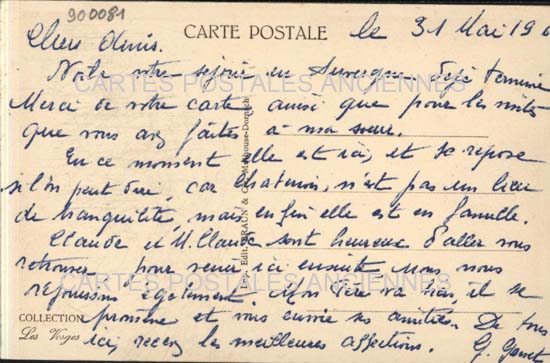 900081
CARTE POSTALE
le 31 Mai 19
Chers Amis.
Voilà votre séjour en Auvergne déjà terminé
CARTES POSTALES ANCIENNES
Merci de votre carte ainsi que pour les visites
que vous avez faites à ma soeur.
En ce moment elle est ici, et se repose
si l'on peut dire, car n'est pas un lieu
de tranquilité, mais enfin elle est en famille.
Claude et M. Claude sont heureux d'aller vous
retrouver pour venir ici ensuite nous nous
CARTES POSTALES ANCIENNES
réjouissons également. Mon Père va bien, il se
promène et vous envoie ses amitiés. De tous
ici, recevez les meilleures affections.
G.
COLLECTION
Les Vosges
Imp. Edit. BRAUN & Cie, Mulhouse-Dornach